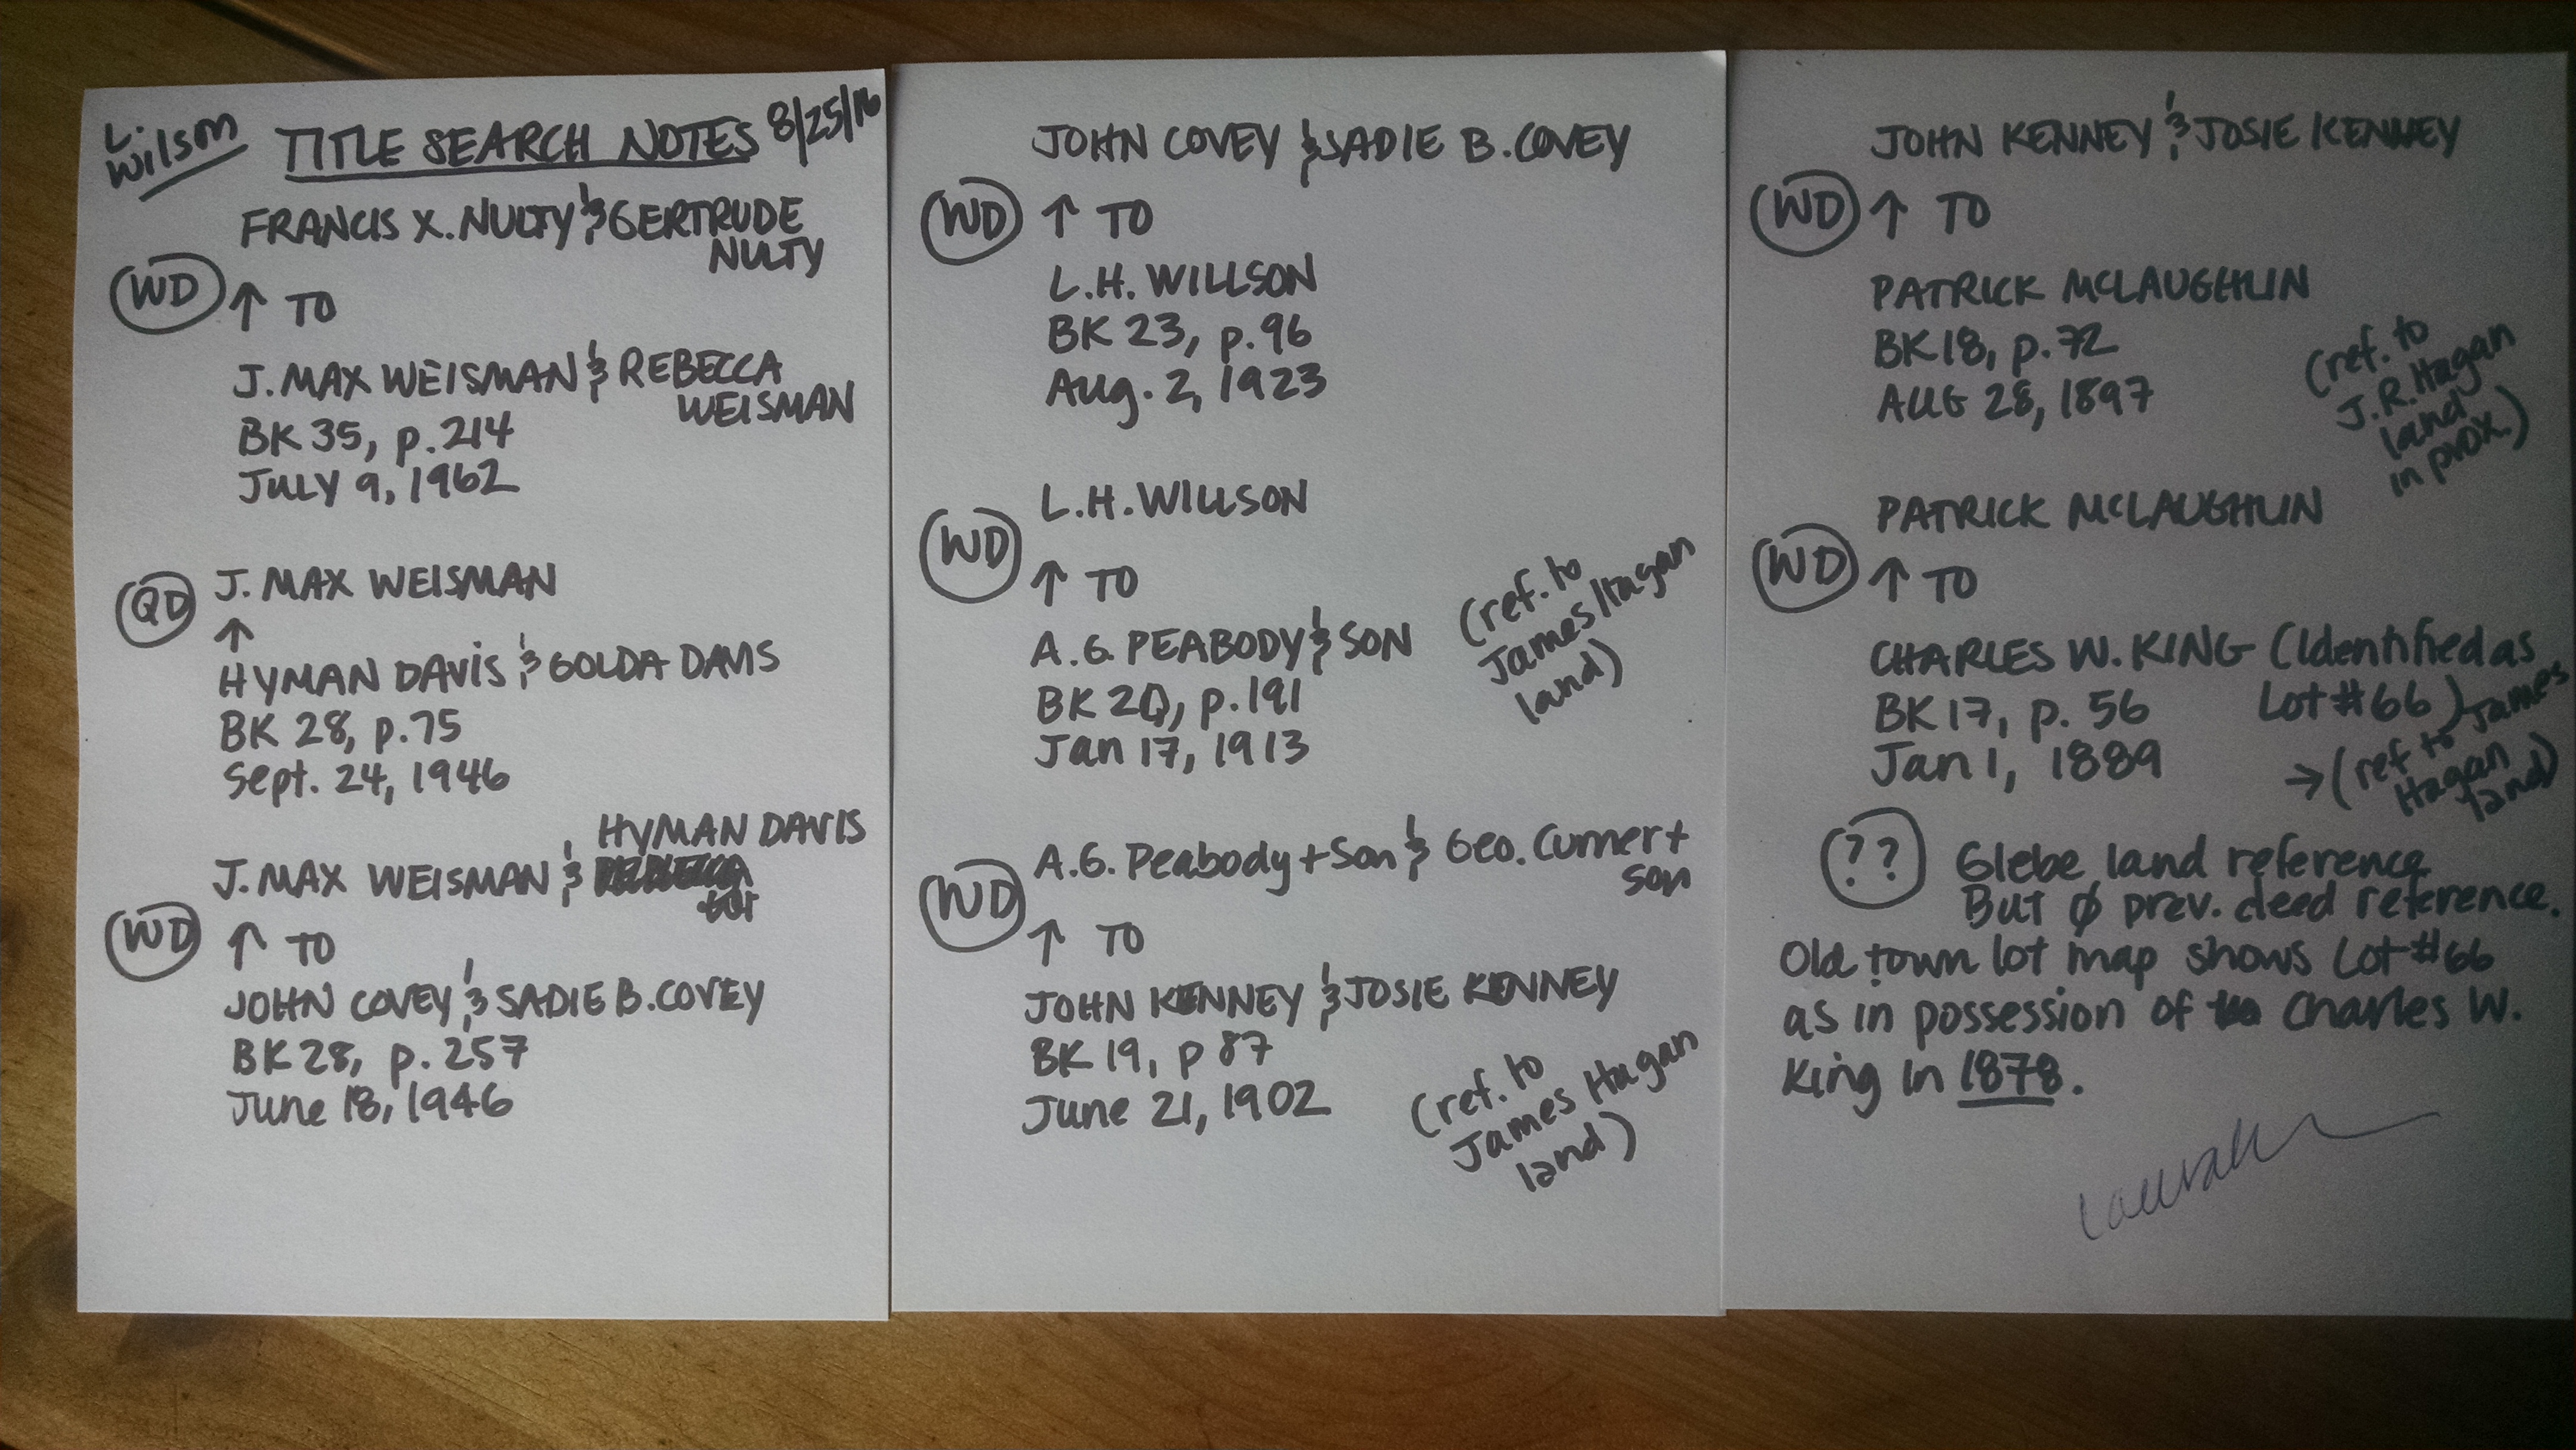 L. Wilson
TITLE SEARCH NOTES 8/25/16
FRANCIS X. NULTY & GERTRUDE
NULTY
WD ↑ TO
J. MAX WEISMAN & REBECCA
WEISMAN
BK 35, p. 214
JULY 9, 1962
QD J. MAX WEISMAN
↑
HYMAN DAVIS & GOLDA DAVIS
BK 28, p. 75
Sept. 24, 1946
HYMAN DAVIS
J. MAX WEISMAN &
WD ↑ TO
JOHN COVEY & SADIE B. COVEY
BK 28, p. 257
June 18, 1946
JOHN COVEY & SADIE B. COVEY
WD ↑ TO
L.H. WILLSON
BK 23, p. 96
Aug. 2, 1923
L.H. WILLSON
WD
↑ TO
A.G. PEABODY & SON
BK 20, p. 191
Jan 17, 1913
(ref. to
James Hagan
land)
A.G. Peabody + Son & Geo.
son
WD
↑ TO
JOHN KENNEY & JOSIE KENNEY
BK 19, p 87
June 21, 1902
(ref. to
James Hagan
land)
JOHN KENNEY & JOSIE KENNEY
WD ↑ TO
PATRICK MCLAUGHLIN
BK 18, p. 72
AUG 28, 1897
(ref. to
J.R. Hagan
land
in prox.)
PATRICK MCLAUGHLIN
WD ↑ TO
CHARLES W. KING (Identified as
BK 17, p. 56 Lot #66)
Jan 1, 1889
→ (ref to James
Hagan
land)
?? Glebe land reference
But ∅ prev. deed reference.
Old town lot map shows Lot #66
as in possession of Charles W.
King in 1878.